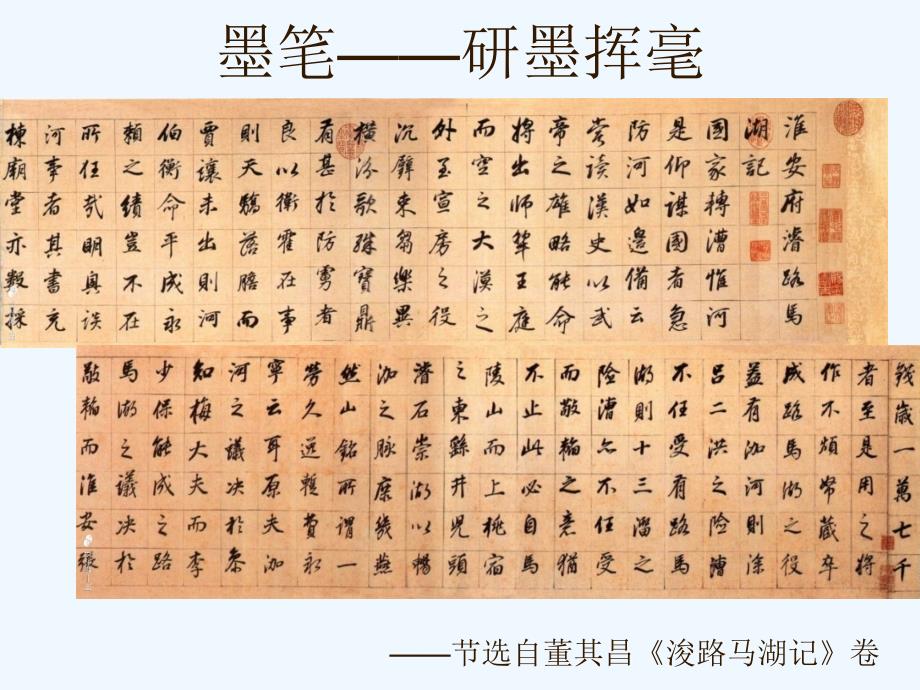 墨笔——研墨挥毫
淮安府濬路馬
湖記
國家轉漕惟河
是仰謀國者急
防河如邊備云
嘗讀漢史以武
帝之雄略能命
將出師犂王庭
而空之大漠之
外至宣房之役
沉璧束芻樂異
橫汾歌殊寶鼎
有甚於防者
良以衛霍在事
則天驕落膽而
賈讓未出則河
伯衡命平成永
賴之績豈不在
所任哉明興談
河事者其書充
棟廟堂亦數採
歲一萬七千
者至是用之將
作不煩帑藏卒
成路馬湖之役
益有泇河則除
呂二洪之險漕
不任受有路馬
湖則十三溜之
險漕亦不任受
而之意猶
不止此必自馬
陵山而上桃宿
之東繇井兒頭
濬石崇湖以暢
泇之脉庶幾燕
然山銘所謂一
勞久逸暫費永
寧云耳原夫泇
河之議决於叅
知梅大夫而李
少保能成之路
馬湖之議决於
而淮安張
——节选自董其昌《浚路马湖记》卷